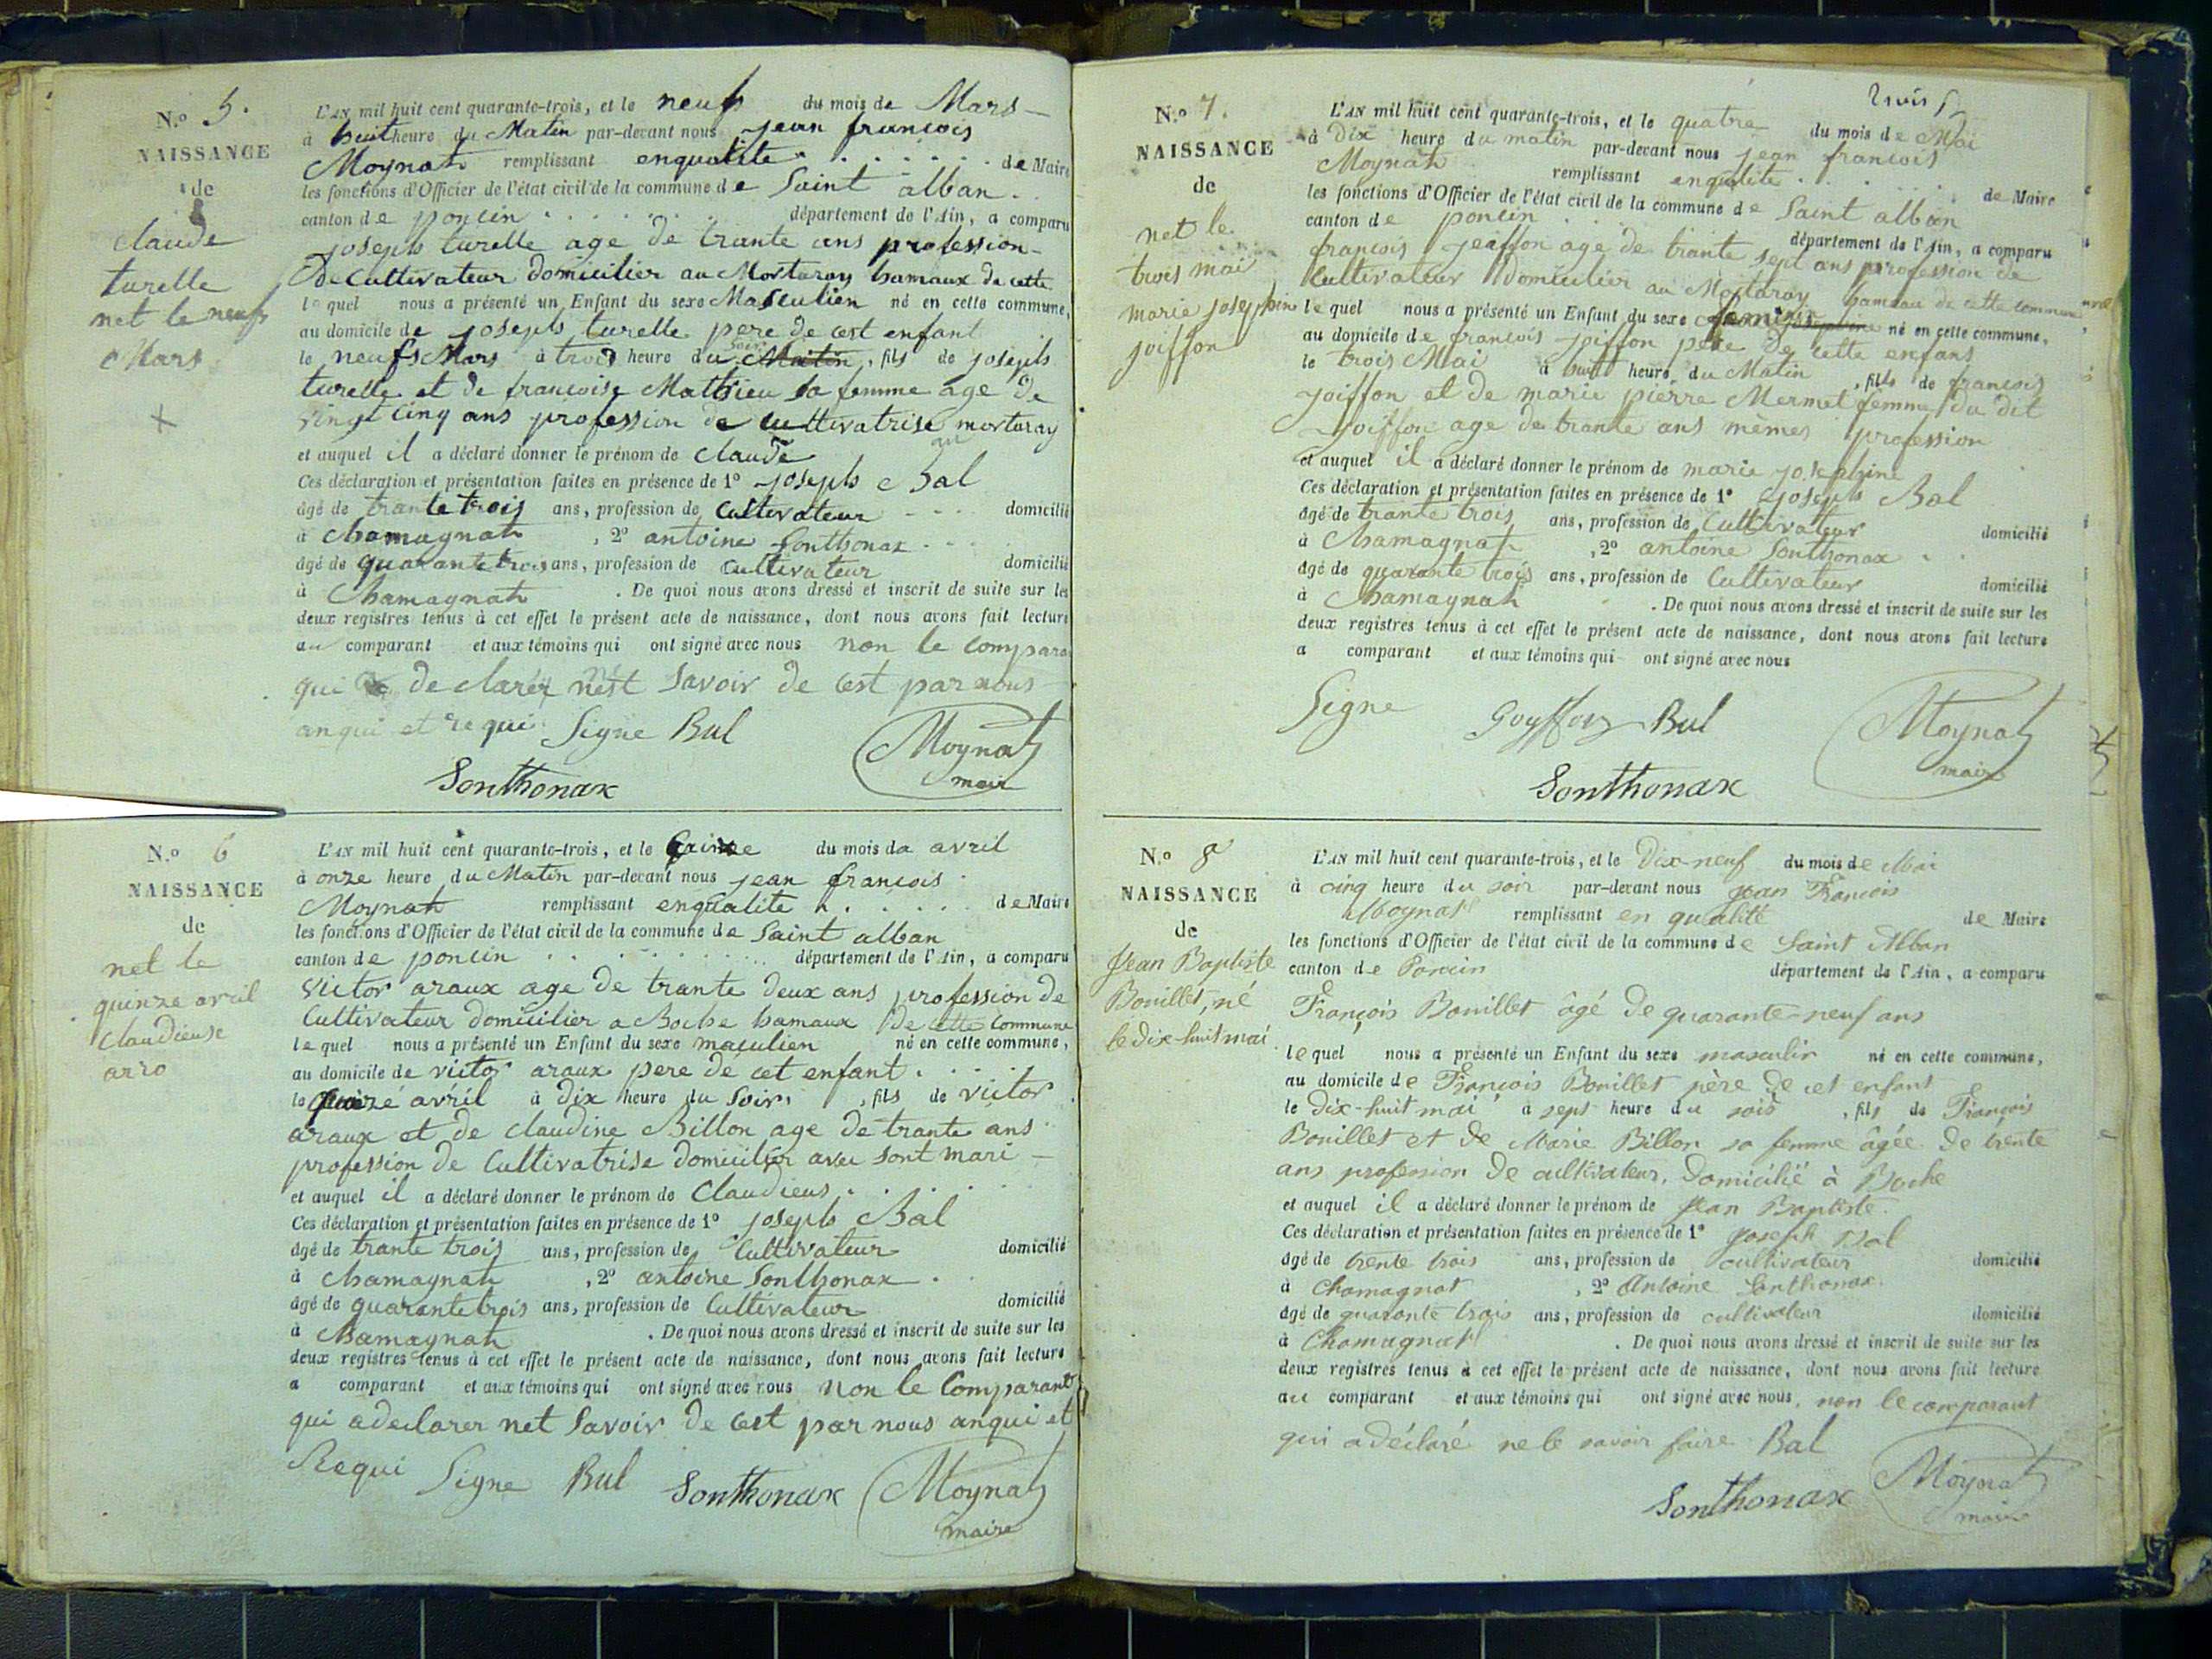 N.o 5.
NAISSANCE
de
claude
turelle
net le neufs
Mars
L'AN mil huit cent quarante-trois, et le neufs du mois de Mars
à huit heure du Matin par-devant nous jean francois
Moynat remplissant enqualite de Maire
les fonctions d'Officier de l'état civil de la commune de Saint alban
canton de poncin département de l'Ain, a comparu
joseph turelle age de trante ans profession
De Cultivateur domicilier au Mortaray hamaux de cette
le quel nous a présenté un Enfant du sexe Masculien né en cette commune,
au domicile de joseph turelle pere de cest enfant
le neufs Mars à trois heure du soir Matin, fils de joseph
turelle et de francoise Mathieu sa femme age de
vingt cinq ans profession de cultivatrise au mortaray
et auquel il a déclaré donner le prénom de claude
Ces déclaration et présentation faites en présence de 1º joseph Bal
âgé de trante trois ans, profession de Cultivateur domicilié
à chamagnat, 2º antoine Sonthonax
âgé de quarante trois ans, profession de Cultivateur domicilié
à Chamagnat. De quoi nous avons dressé et inscrit de suite sur les
deux registres tenus à cet effet le présent acte de naissance, dont nous avons fait lecture
au comparant et aux témoins qui ont signé avec nous non le compara
qui declarer nest Savoir de cest par nous
anqui et requi Signe Bal Moynat
Sonthonax mair
N.o 6
NAISSANCE
de
net le
quinze avril
claudieuse
arro
L'AN mil huit cent quarante-trois, et le quinze du mois da avril
à onze heure du Matin par-devant nous jean francois
Moynat remplissant enqualite de Maire
les fonctions d'Officier de l'état civil de la commune de Saint alban
canton de poncin département de l'Ain, a comparu
victor araux age de trante deux ans profession de
Cultivateur domicilier a Boche hamaux de cette commune
le quel nous a présenté un Enfant du sexe maculien né en cette commune,
au domicile de victor araux pere de cet enfant
le quinzé avril à dix heure du Soir, fils de victor
araux et de claudine Billon age de trante ans
profession de Cultivatrise domicilier avec sont mari
et auquel il a déclaré donner le prénom de Claudieus
Ces déclaration et présentation faites en présence de 1º joseph Bal
âgé de trante trois ans, profession de Cultivateur domicilié
à chamagnat, 2º antoine Sonthonax
âgé de quarante trois ans, profession de Cultivateur domicilié
à Chamagnat. De quoi nous avons dressé et inscrit de suite sur les
deux registres tenus à cet effet le présent acte de naissance, dont nous avons fait lecture
a comparant et aux témoins qui ont signé avec nous non le Comparant
qui a declarer net Savoir de cest par nous anqui et
Requi Signe Bal Sonthonax Moynat
maire
trois
N.o 7.
NAISSANCE
de
net le
trois mai
marie josephin
joiffon
L'AN mil huit cent quarante-trois, et le quatre du mois de Mai
à Dix heure du matin par-devant nous jean francois
Moynat remplissant enqualite de Maire
les fonctions d'Officier de l'état civil de la commune de Saint alban
canton de poncin département de l'Ain, a comparu
francois joiffon age de trante sept ans profession de
Cultivateur Domicilier au Mortaray hameau de cette commune
le quel nous a présenté un Enfant du sexe né en cette commune,
au domicile de francois joiffon pere de cette enfans
le trois Mai à huit heure du Matin, fille de francois
joiffon et de marie pierre Mermet femme du dit
joiffon age de trante ans mèmes profession
et auquel il a déclaré donner le prénom de marie josephine
Ces déclaration et présentation faites en présence de 1º joseph Bal
âgé de trante trois ans, profession de Cultivateur domicilié
à Chamagnat, 2º antoine Sonthonax
âgé de quarante trois ans, profession de Cultivateur domicilié
à Chamagnat. De quoi nous avons dressé et inscrit de suite sur les
deux registres tenus à cet effet le présent acte de naissance, dont nous avons fait lecture
a comparant et aux témoins qui ont signé avec nous
Signe Goyffon Bal Moynat
Sonthonax maire
N.o 8
NAISSANCE
de
Jean Baptiste
Bouillet, né
le dix-huit mai
L'AN mil huit cent quarante-trois, et le Dix-neuf du mois de Mai
à cinq heure du soir par-devant nous Jean François
Moynat remplissant en qualité de Maire
les fonctions d'Officier de l'état civil de la commune de Saint Alban
canton de Poncin département de l'Ain, a comparu
François Bouillet âgé de quarante-neuf ans
le quel nous a présenté un Enfant du sexe masculin né en cette commune,
au domicile de François Bouillet père de cet enfant
le dix-huit mai à sept heure du soir, fils de François
Bouillet et de Marie Billon sa femme âgée de trente
ans profession de cultivateur, domicilié à Boche
et auquel il a déclaré donner le prénom de Jean Baptiste.
Ces déclaration et présentation faites en présence de 1º Joseph Bal
âgé de trente trois ans, profession de cultivateur domicilié
à Chamagnat, 2º Antoine Sonthonax
âgé de quarante trois ans, profession de cultivateur domicilié
à Chamagnat. De quoi nous avons dressé et inscrit de suite sur les
deux registres tenus à cet effet le présent acte de naissance, dont nous avons fait lecture
au comparant et aux témoins qui ont signé avec nous, non le comparant
qui a déclaré ne le savoir faire Bal
Sonthonax Moynat
maire